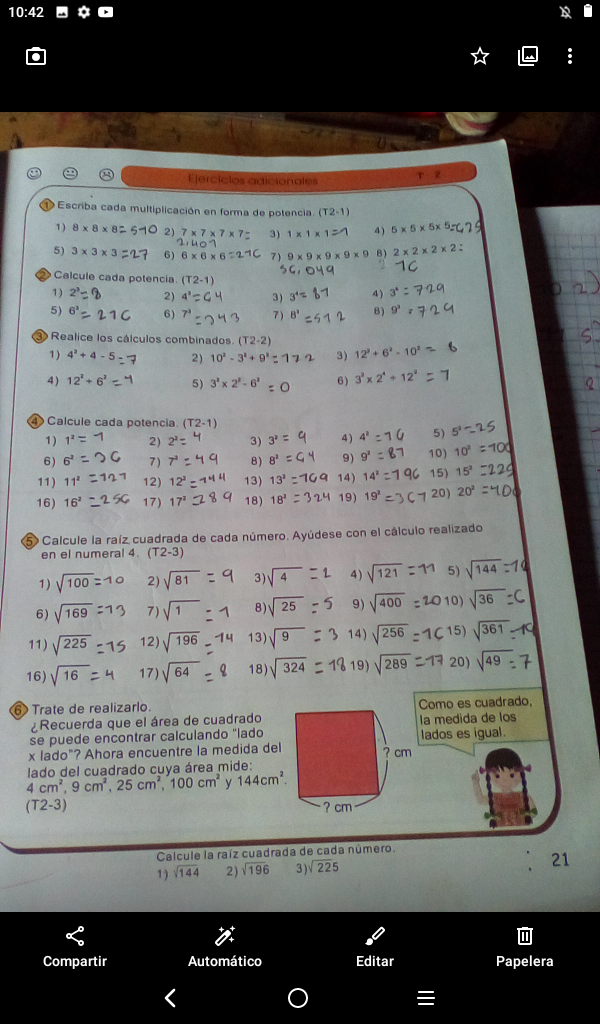 10:42
Ejercicios adicionales T 2
1 Escriba cada multiplicación en forma de potencia. (T2-1)
1) 8 x 8 x 8 = 510 2) 7 x 7 x 7 x 7 = 2,401 3) 1 x 1 x 1 = 1 4) 5 x 5 x 5 x 5 = 625
5) 3 x 3 x 3 = 27 6) 6 x 6 x 6 = 216 7) 9 x 9 x 9 x 9 x 9 56,049 8) 2 x 2 x 2 x 2 = 16
2 Calcule cada potencia. (T2-1)
1) 2³ = 8 2) 4³ = 64 3) 3⁴ = 81 4) 3⁶ = 729
5) 6³ = 216 6) 7³ = 343 7) 8³ = 512 8) 9³ = 729
3 Realice los cálculos combinados. (T2-2)
1) 4² + 4 - 5 = 7 2) 10² - 3² + 9² = 172 3) 12² + 6² - 10² = 8
4) 12² ÷ 6² = 4 5) 3² x 2² - 6² = 0 6) 3² x 2⁴ ÷ 12² = 1
4 Calcule cada potencia. (T2-1)
1) 1² = 1 2) 2² = 4 3) 3² = 9 4) 4² = 16 5) 5² = 25
6) 6² = 36 7) 7² = 49 8) 8² = 64 9) 9² = 81 10) 10² = 100
11) 11² = 121 12) 12² = 144 13) 13² = 169 14) 14² = 196 15) 15² = 225
16) 16² = 256 17) 17² = 289 18) 18² = 324 19) 19² = 361 20) 20² = 400
5 Calcule la raíz cuadrada de cada número. Ayúdese con el cálculo realizado
en el numeral 4. (T2-3)
1) √100 = 10 2) √81 = 9 3) √4 = 2 4) √121 = 11 5) √144 = 12
6) √169 = 13 7) √1 = 1 8) √25 = 5 9) √400 = 20 10) √36 = 6
11) √225 = 15 12) √196 = 14 13) √9 = 3 14) √256 = 16 15) √361 = 19
16) √16 = 4 17) √64 = 8 18) √324 = 18 19) √289 = 17 20) √49 = 7
6 Trate de realizarlo.
¿Recuerda que el área de cuadrado
se puede encontrar calculando "lado
x lado"? Ahora encuentre la medida del
lado del cuadrado cuya área mide:
4 cm², 9 cm², 25 cm², 100 cm² y 144cm².
(T2-3)
? cm
? cm
Como es cuadrado,
la medida de los
lados es igual.
Calcule la raíz cuadrada de cada número.
1) √144 2) √196 3) √225
21
Compartir Automático Editar Papelera